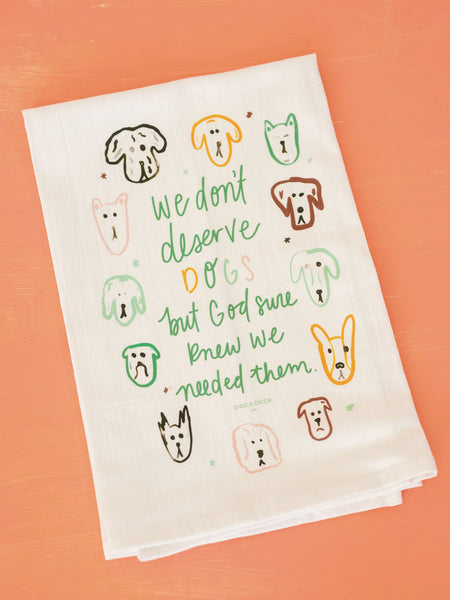 We don't
deserve
DOGS
but God sure
knew we
needed them.
DOE A DEER